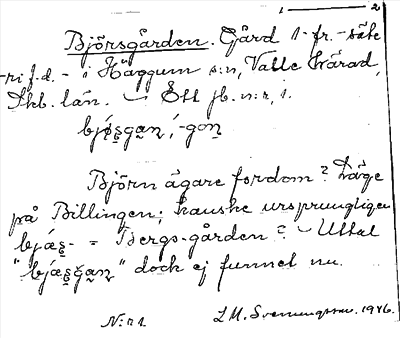 1 — 2
Björsgården. Gård 1-fr.-säte
-ri f.d. - i Häggum s:n, Valle härad,
Skb. län. — Ett jb. n:r, 1.
bjǿs̱gaṉ, -goṉ
Björn ägare fordom? Läge
på Billingen; kanske ursprungligen
bjæs̱- = Bergs-gården? — Uttal
"bjæs̱gaṉ" dock ej funnet nu.
N:r 1 L.M. Svenungsson. 1946.